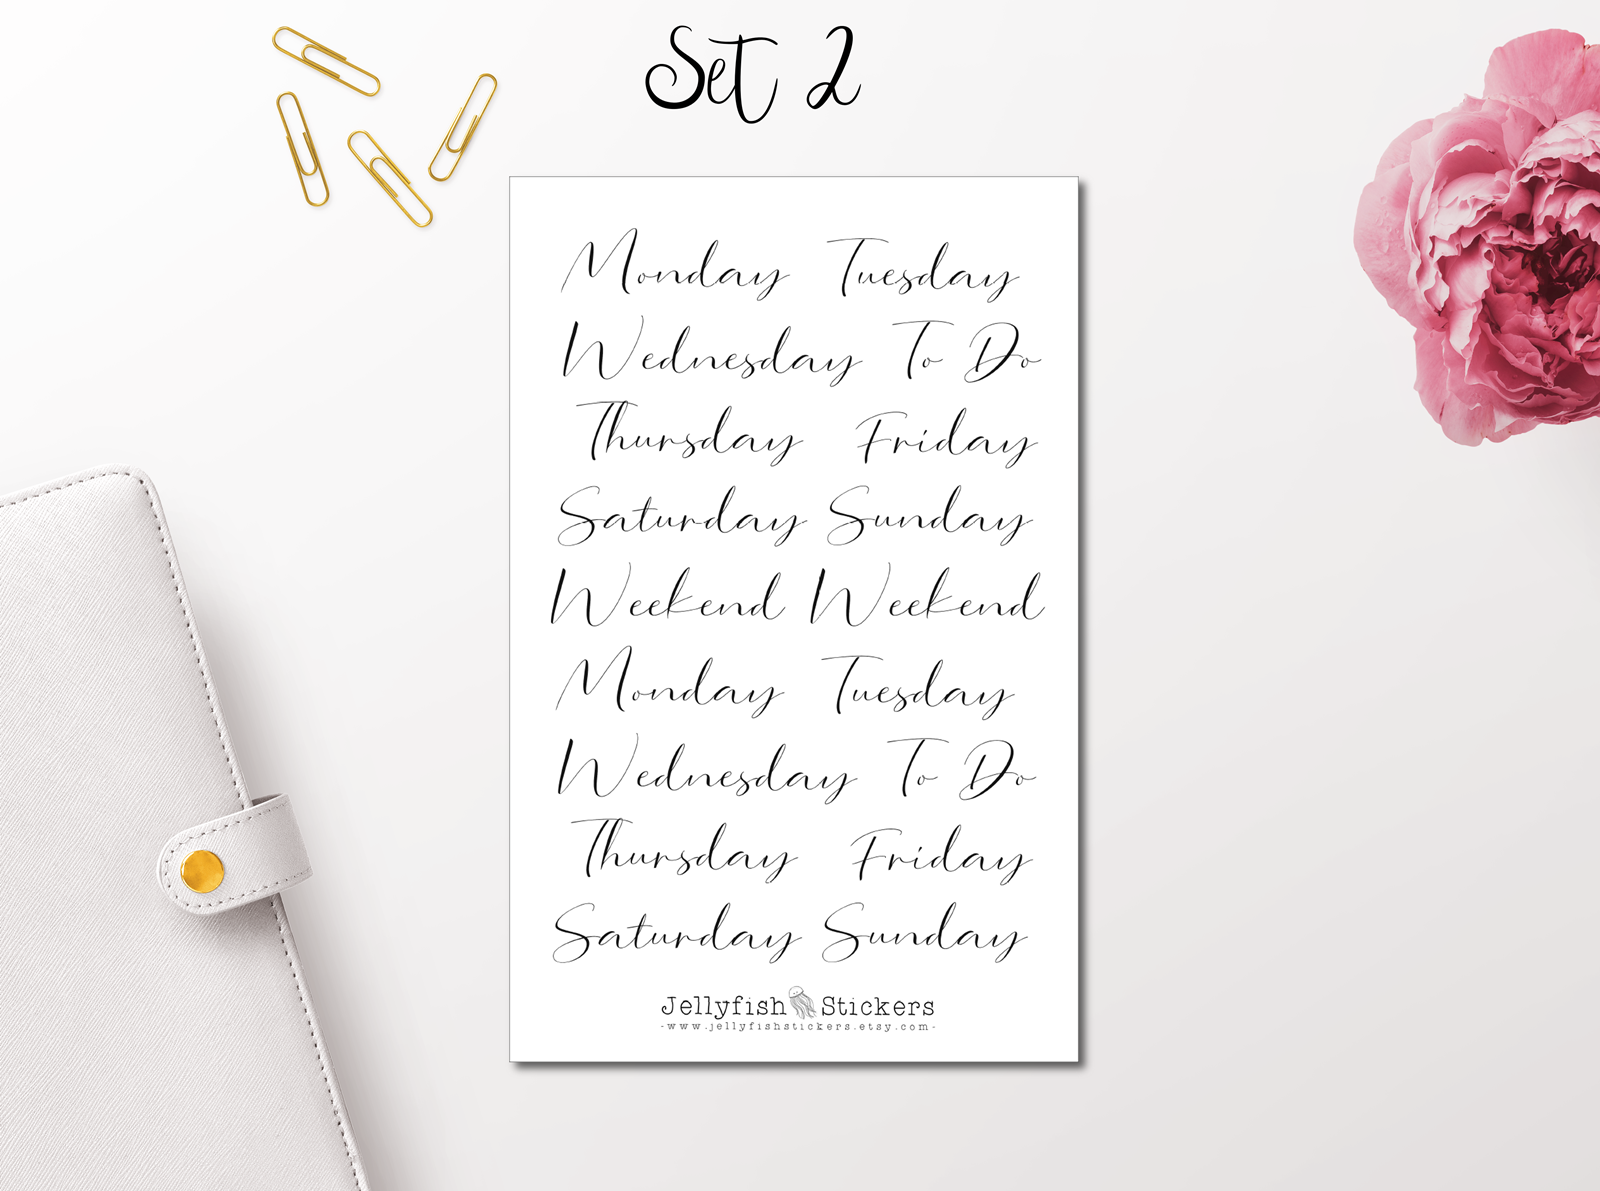 Set 2
Monday Tuesday
Wednesday To Do
Thursday Friday
Saturday Sunday
Weekend Weekend
Monday Tuesday
Wednesday To Do
Thursday Friday
Saturday Sunday
Jellyfish Stickers
-www.jellyfishstickers.etsy.com-